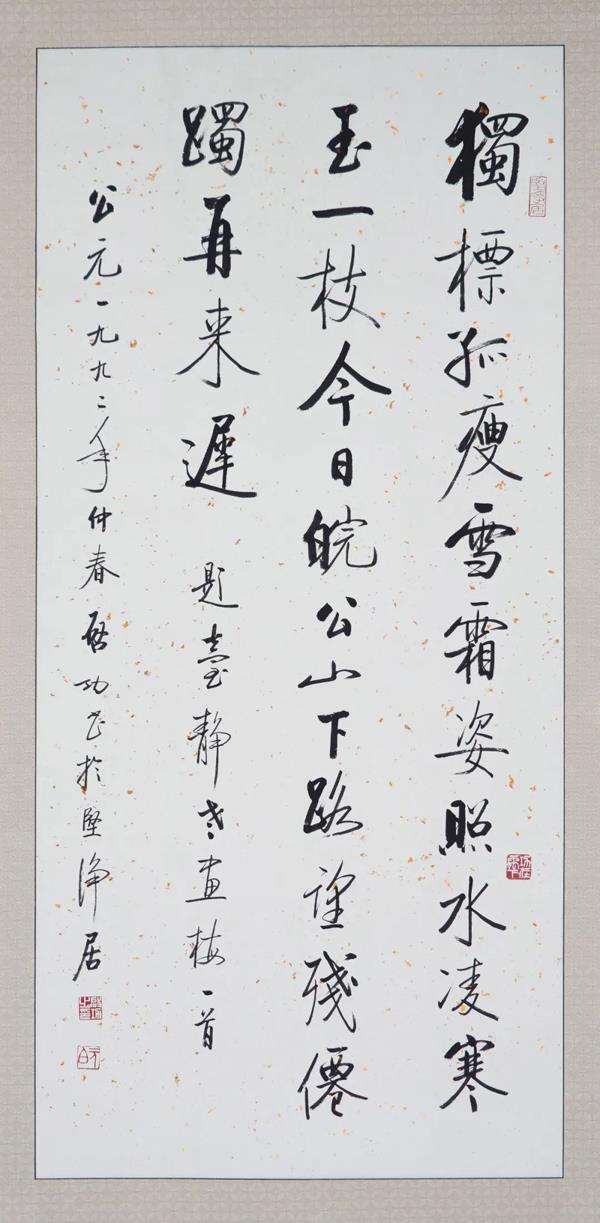 獨標孤瘦雪霜姿照水凌寒
玉一枝今日皖公山下路望殘僊
躅再来遲 題臺静老畫梅一首
公元一九九二年仲春啓功書於堅淨居
元白